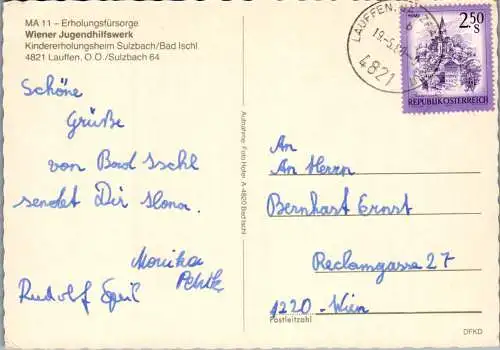 MA 11 – Erholungsfürsorge
Wiener Jugendhilfswerk
Kindererholungsheim Sulzbach/Bad Ischl
4821 Lauffen, O.Ö./Sulzbach 64
Schöne
Grüße
von Bad Ischl
sendet Dir Ilona.
Monika
Rudolf
Aufnahme: Foto Hofer, A-4820 Bad Ischl
LAUFFEN
19.-5.
4821
2.50
S
REPUBLIK ÖSTERREICH
An
An Herrn
Bernhast Ernst
Reclamgasse 27
1220 - Wien
Postleitzahl
DFKD